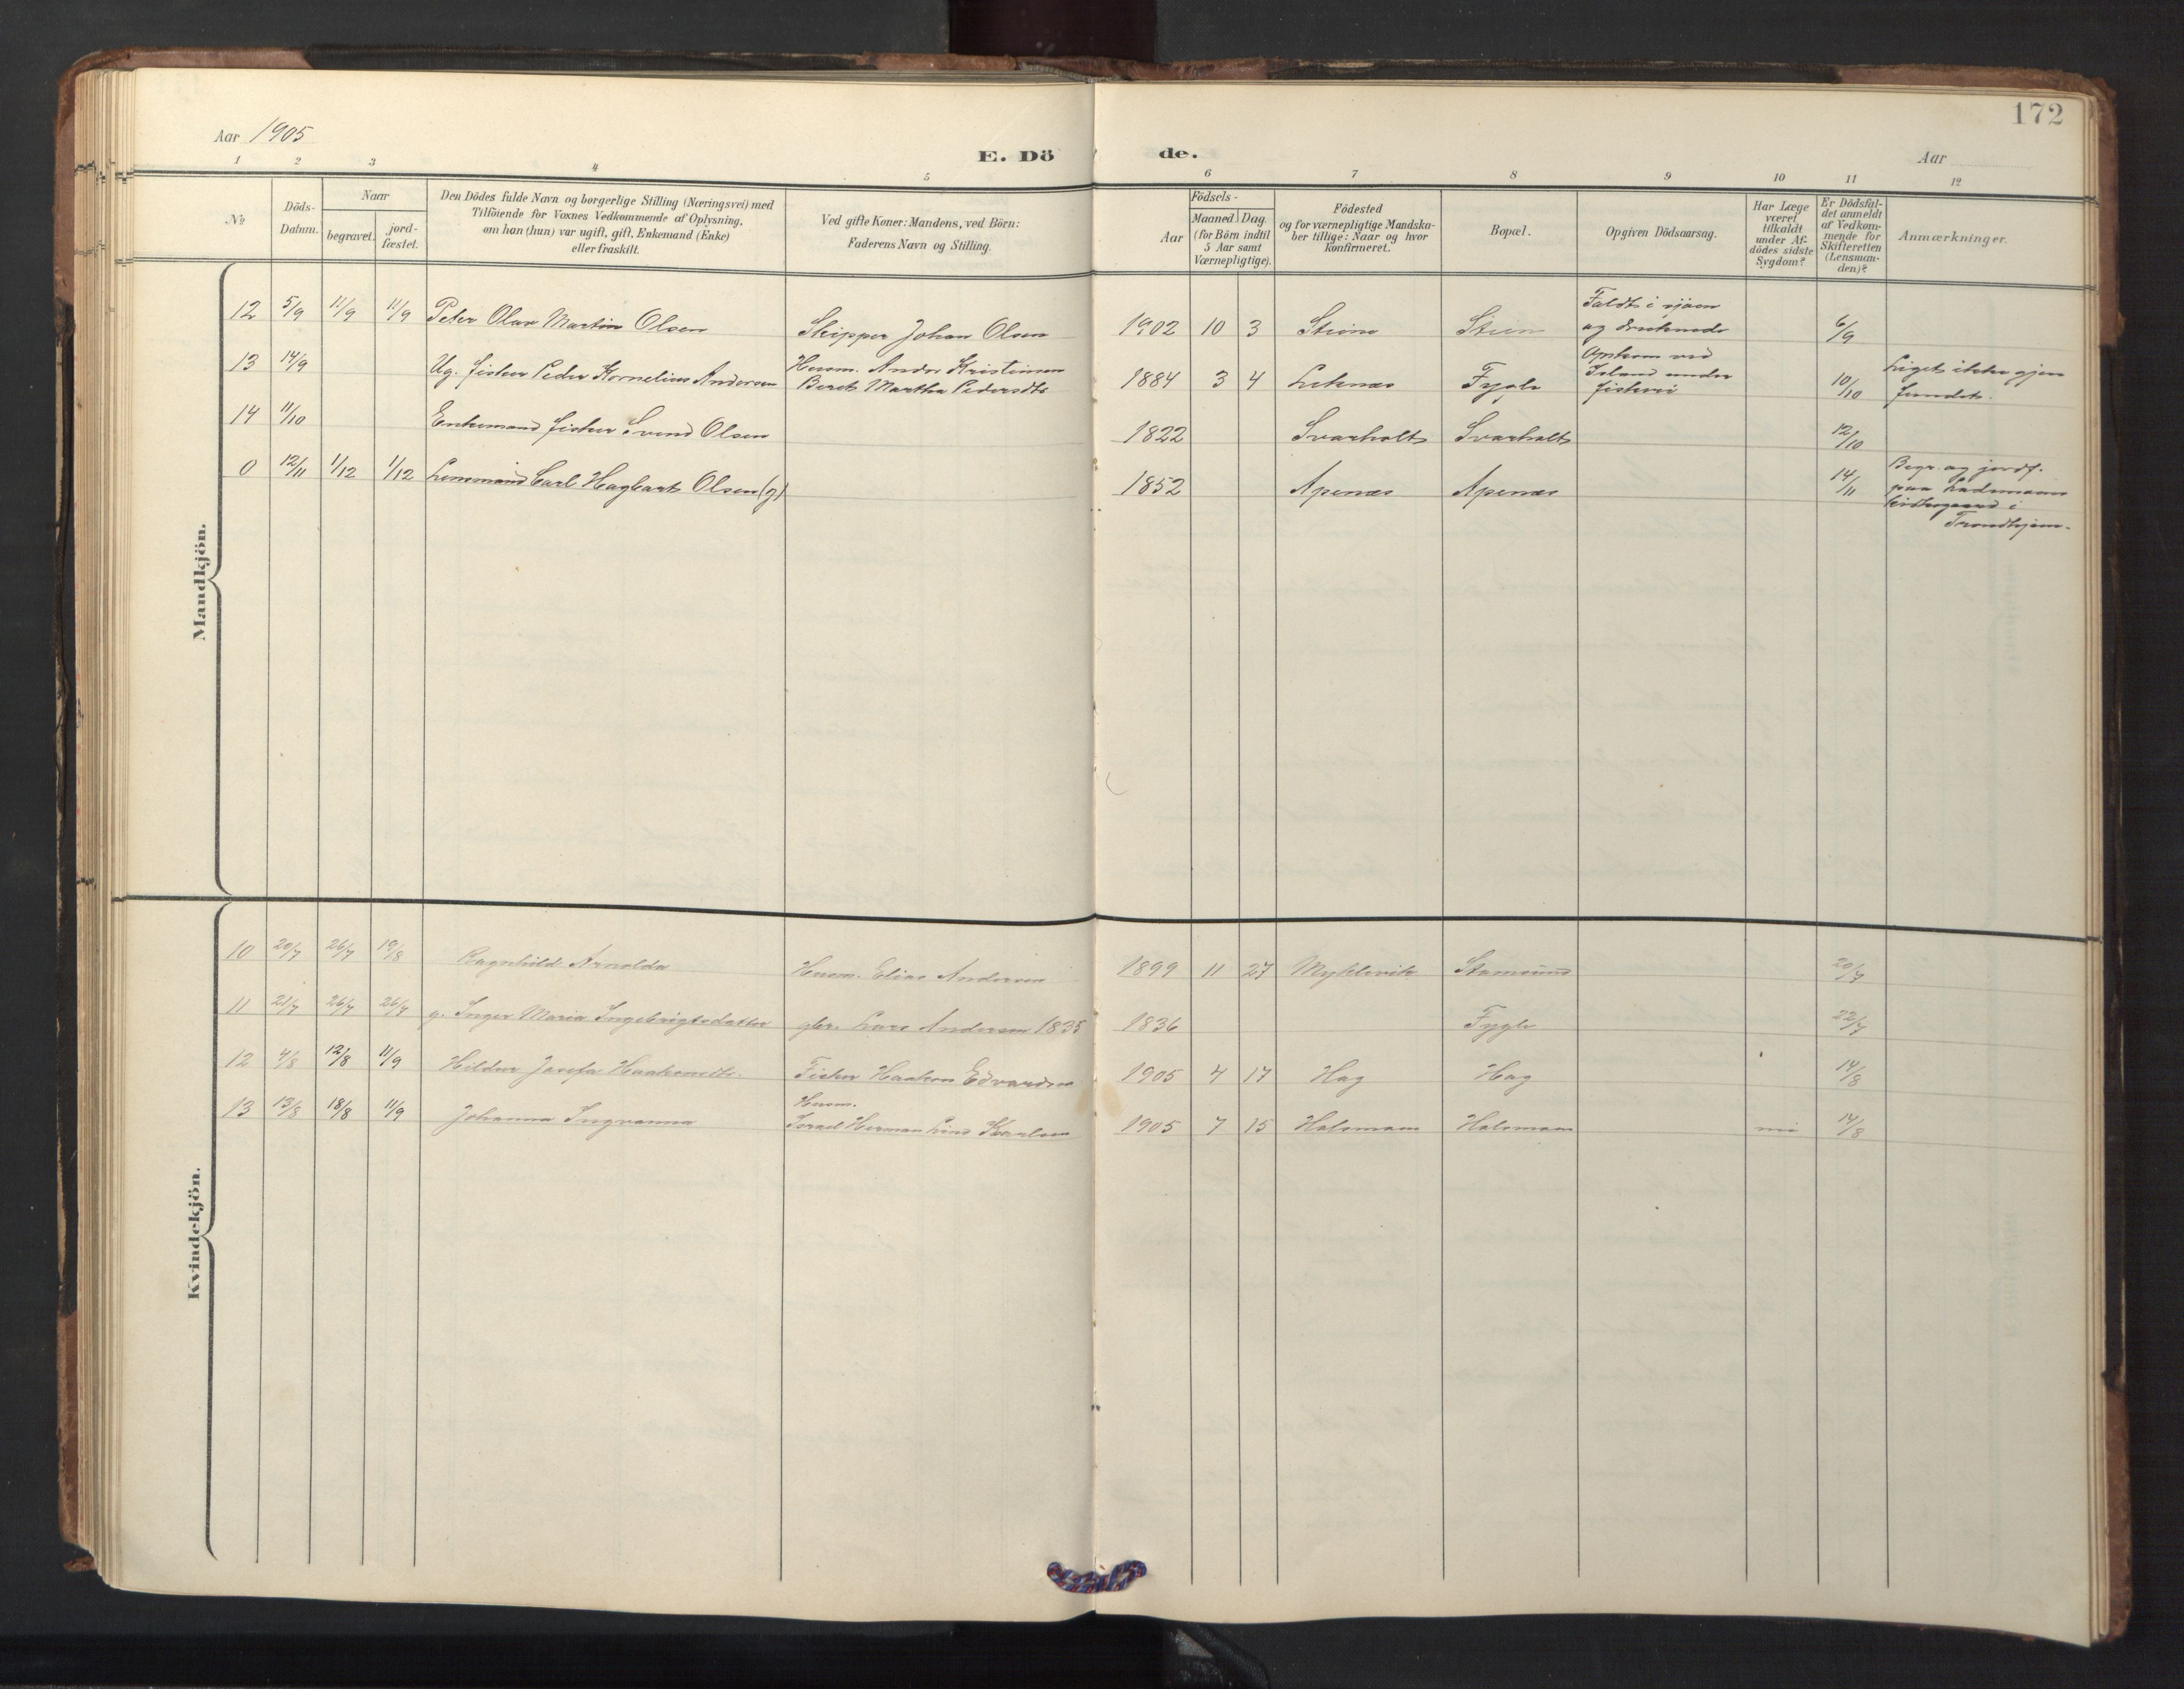 172
Aar 1905
E. Dö de.
Aar
1 2 3 4 5 6 7 8 9 10 11 12
№
Döds-Datum.
Naar
begravet.
jord-fæstet.
Den Dödes fulde Navn og borgerlige Stilling (Næringsvei) med
Tilföiende for Voxnes Vedkommende af Oplysning,
om han (hun) var ugift, gift, Enkemand (Enke)
eller fraskilt.
Ved gifte Koner: Mandens, ved Börn:
Faderens Navn og Stilling.
Födsels-
Aar
Maaned Dag.
(for Börn indtil
5 Aar samt
Værnepligtige).
Födested
og for værnepligtige Mandska-
ber tillige: Naar og hvor
konfirmeret.
Bopæl.
Opgiven Dödsaarsag.
Har Læge
været
tilkaldt
under Af-
dödes sidste
Sygdom?
Er Dödsfal-
det anmeldt
af Vedkom-
mende for
Skifteretten
(Lensman-
den)?
Anmærkninger.
Mandkjön.
12 5/9 11/9 11/9 Peter Olav Martin Olsen Skipper Johan Olsen 1902 10 3 Steine Stein
Faldt i sjøen
og druknede
6/9
13 14/9 Ug. fisker Peder Kornelius Andersen
Husm. Andor Kristiansen
Beret Martha Pedersdtr
1884 3 4 Leknes Fygle
Omkom ved
Island under
fiskeri
10/10
Liget ikke gjen
fundet.
14 11/10 Enkemand fisker Svend Olsen 1822 Svarholt Svarholt 12/10
0 12/11 1/12 1/12 Lensmand Carl Hagbart Olsen (g) 1852 Apenes Apenes 14/11
Begr. og jordf.
paa Lademoens
kirkegaard i
Trondhjem.
Kvindekjön.
10 20/7 26/7 19/8 Ragnhild Arnolda Husm. Elias Andersen 1899 11 27 Myklevik Stamsund 20/7
11 21/7 26/7 26/7 g. Inger Maria Ingebrigtsdatter gbr. Lars Andersen 1835 1836 Fygle 22/7
12 4/8 12/8 11/9 Hildur Josefa Haakonsdtr. Fisker Haakon Edvardsen 1905 4 17 Hag Hag 14/8
13 13/8 18/8 11/9 Johanna Ingvanna
Husm.
Israel Herman Lind Karlsen
1905 7 15 Halsmoen Halsmoen nei 14/8